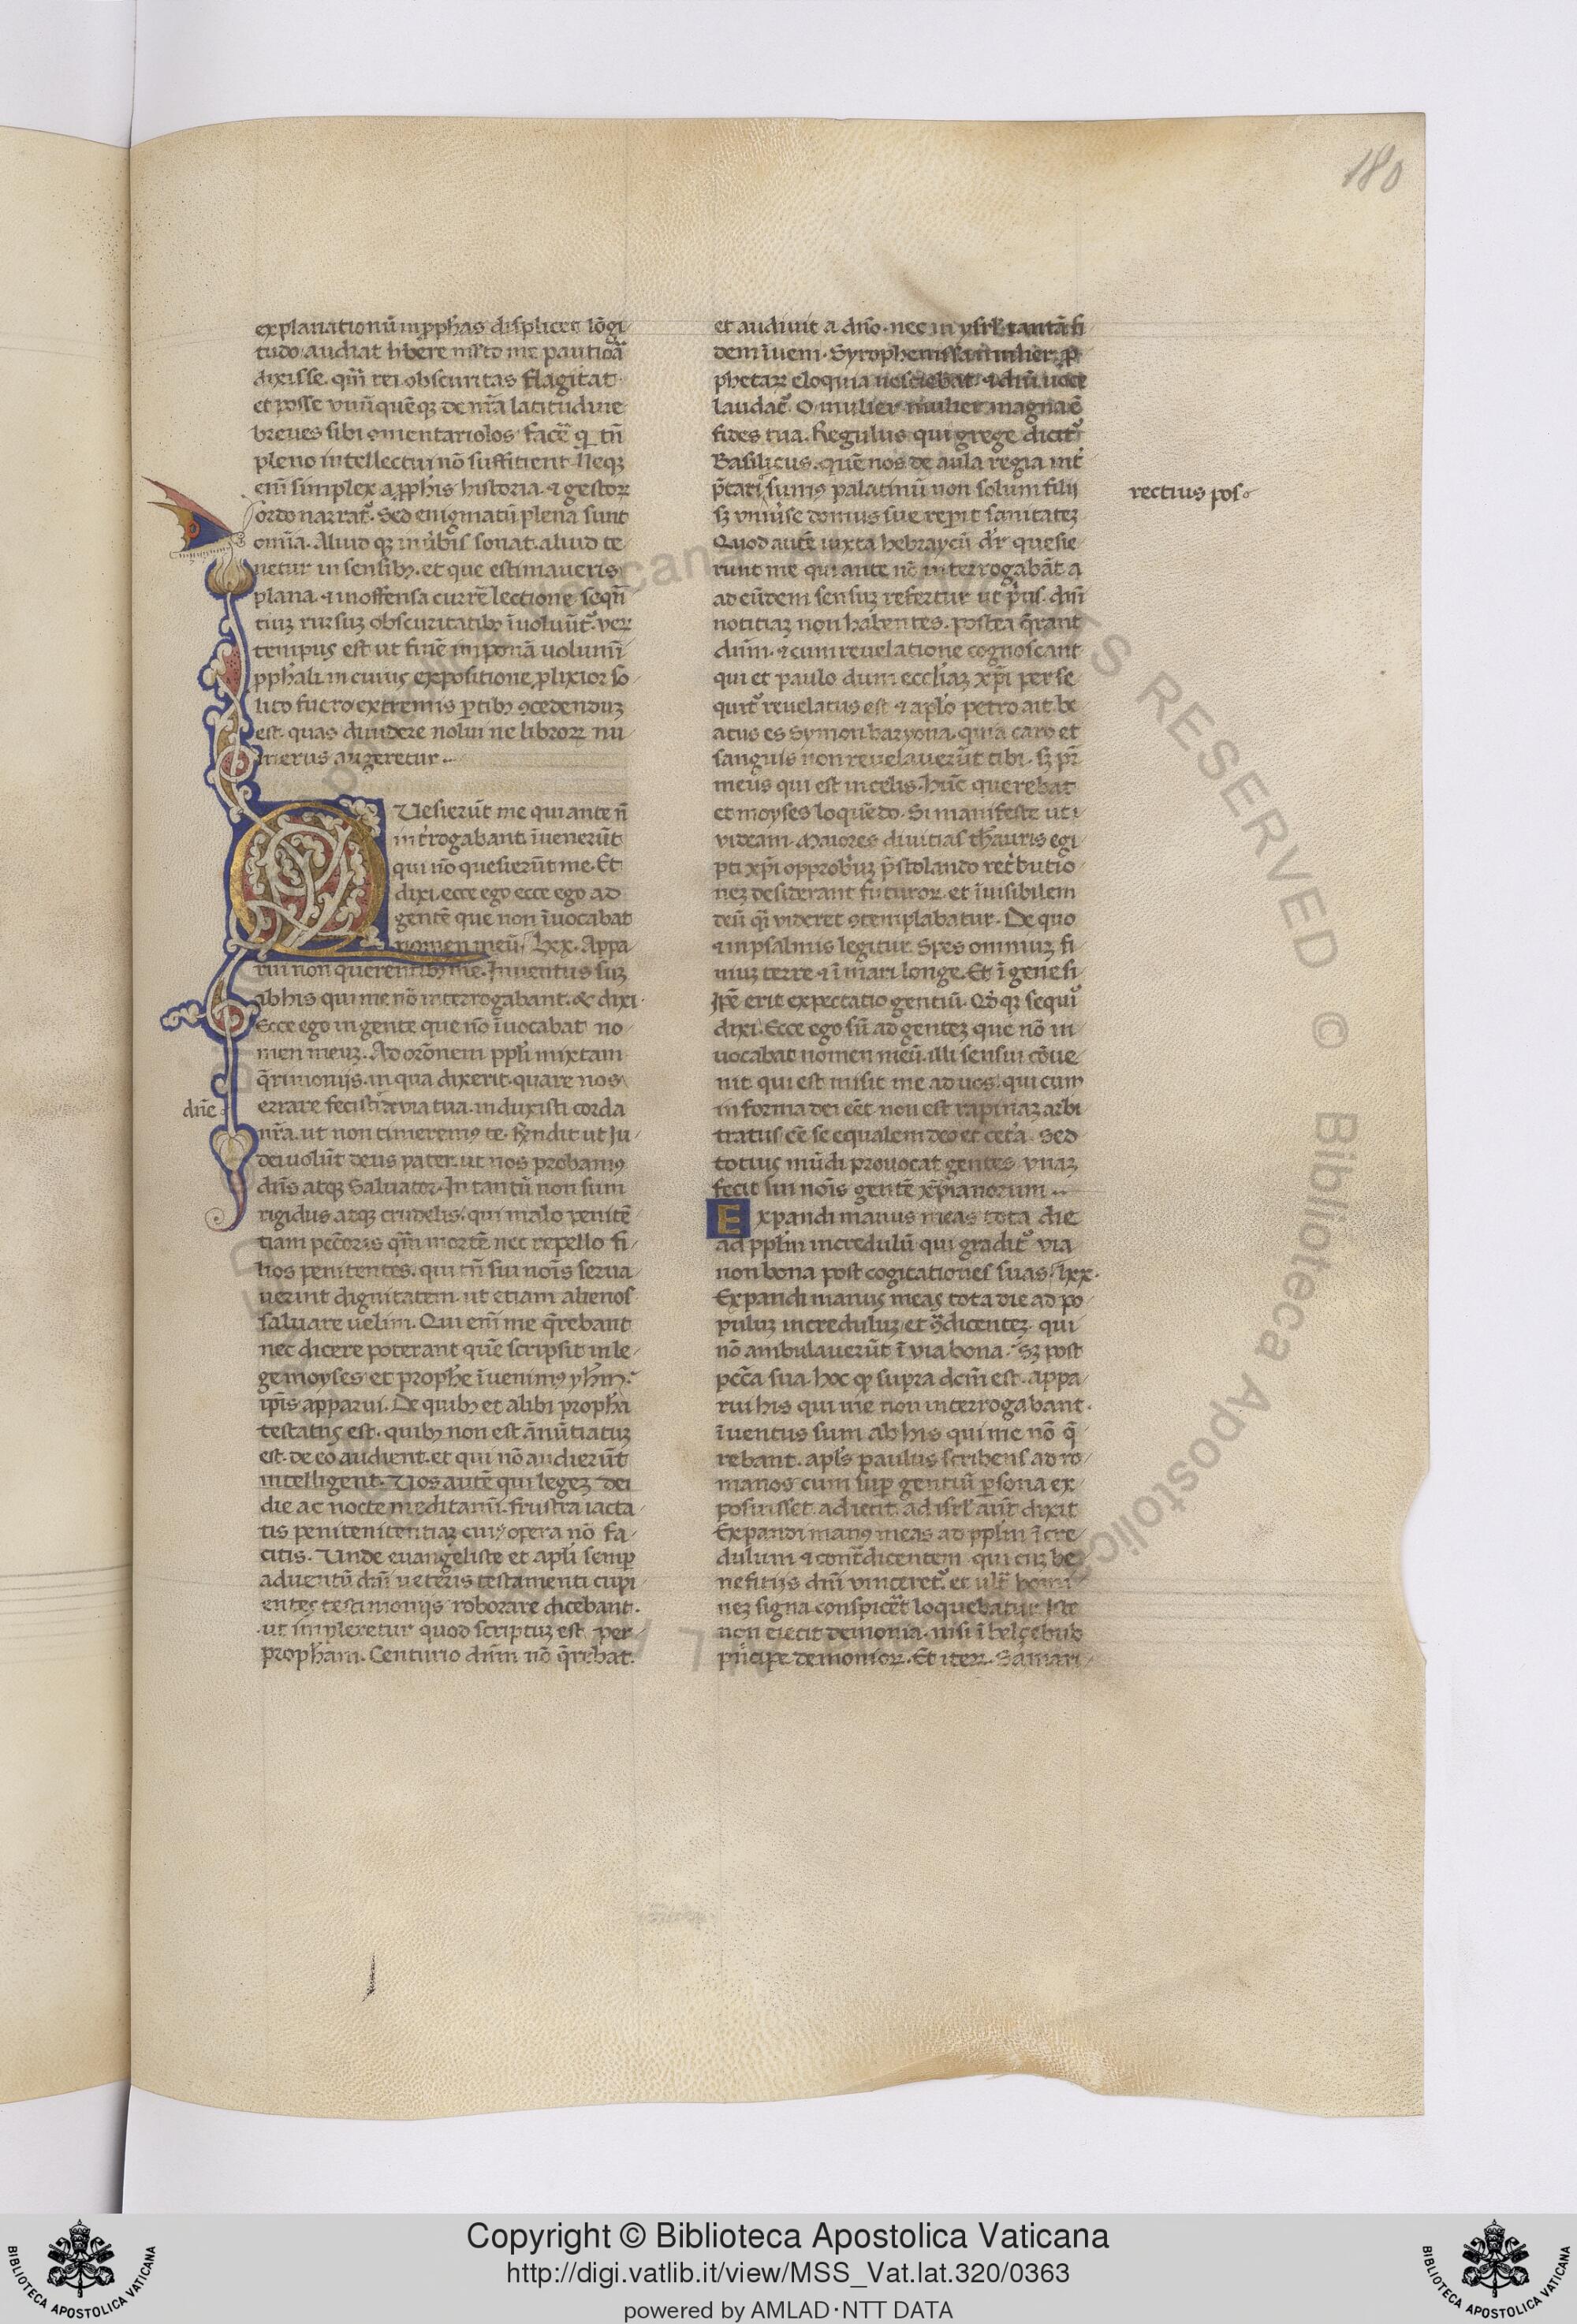 180
explanationū in ꝓphās displicet lōgi
tudo audiat libere nisi to me pautioā
dixisse. qm̄ rei obscuritas flagitat.
et posse vnū quēqꝫ de nr̄a latitudine
breves sibi ꝯmentariolos facē qͥ tn̄
pleno intellectui nō suffitient. Neqꝫ
eni simplex a ꝓphīs historia. ⁊ gestoꝝ
ordo narrat᷑. Sed enigmatū plena sunt
omīa. Aliud qꝫ in v̄bis sonat. aliud te
netur in sensibꝰ. et que estimaveris
plana. ⁊ inoffensa currē lectione. seqn̄
tiuꝫ rursuꝫ obscuritatibꝰ īvoluūt᷑. veꝝ
tempus est ut finē imponā volumī
ꝓphāli. in cuius expositione ꝓlixior so
lito fuero extremis ꝑtibꝰ ꝯcedenduꝫ
est. quas dividere nolui ne libroꝝ nu
merus augeretur.
Quesierūt me qui ante nō
int̄rogabant. īvenerūt
qui nō quesierūt me. Et
dixi. ecce ego ecce ego ad
gentē que non īvocabat
nomen meū. Lxx. Appa
rui non querentibꝰ me. Inventus suꝫ
ab his qui me nō interrogabant. & dixi
Ecce ego in gente que nō īvocabat no
men meuꝫ. Ad orōnem ppli mixtam
q̄rimoniis. in qua dixerit. quare nos
dn̄e
errare fecisti de via tua. induxisti corda
nr̄a. ut non timeremꝰ te. Rn̄dit ut Iu
dei volūt deus pater. ut nos probamꝰ
dn̄s atqꝫ Salvator. In tantū non sum
rigidus atqꝫ crudelis. qui malo penitē
tiam pecōris qm̄ mortē nec repello fi
lios penitentes. qui tn̄ sui noīs serva
verint dignitatem. ut etiam alienos
salvare velim. Qui enī me q̄rebant
nec dicere poterant quē scripsit in le
ge moyses et prophe īvenimꝰ yhm̄.
ip̄is apparui. De quibꝰ et alibi propha
testatus est. quibꝰ non est ānūtiatuꝫ
est. de eo audient. et qui nō audierūt
intelligent. Vos autē qui legeꝫ dei
die ac nocte meditamī. frustra iacta
tis penitenitentiaꝫ cuiꝰ opera nō fa
citis. Unde evangeliste et apli semꝑ
adventū dn̄i veteris testamenti cupi
entes testimoniis roborare dicebant.
ut impleretur quod scriptuꝫ est per
propham. Centurio dn̄m nō q̄rebat.
et audivit a dn̄o. nec in ysrl tantā fi
dem īveni. Syrophenissa mulier. ꝓ
phetaꝝ eloquia nesciebat. ⁊ dn̄i voce
laudat᷑. O mulier mulier magna ē
fides tua. Regulus qui grege dicit᷑
Basilicus. quē nos de aula regia int̄
p̄tari sumꝰ palatinū non solum filii
rectius pos
sꝫ universe domus sue repit sanitateꝫ
Quod autē iuxta hebraycū dr̄ quesie
runt me qui ante nō interrogabāt a
ad eūdem sensuꝫ refertur ut p̄us. dn̄i
notitiaꝫ non habentes. postea q̄rant
dn̄m. ⁊ cum revelatione cognoscant
qui et paulo dum eccliaꝫ xp̄i perse
quit᷑ revelatus est ⁊ aplo petro ait be
atus es Symon baryona. quia caro et
sanguis non revelaverūt tibi. sꝫ pr̄
meus qui est in celis. Hūc querebat
et moyses loquēdo. Si manifeste uti
videam. Maiores divitias thauris egi
pti xp̄i opprobriuꝫ p̄stolando ret̄butio
neꝫ desiderant futuroꝝ. et īvisibilem
deū qͥ videret ꝯtemplabatur. De quo
⁊ in psalmis legitur. Spes omniuꝫ fi
niuꝫ terre ⁊ ī mari longe. Et ī genesi
Ip̄e erit expectatio gentiū. Qd̄ qꝫ sequi᷑
dixi. Ecce ego sū ad genteꝫ que nō in
vocabat nomen meū. illi sensui cōve
nit qui est misit me ad vos. qui cum
in forma dei eēt non est rapinaꝫ arbi
tratus eē se equalem deo et cet̄a. Sed
totius mūdi provocat gentes. vnaꝫ
fecit sui noīs gentē xp̄ianorum.
Expandi manus meas tota die
ad pplm incredulū qui gradit᷑ via
non bona post cogitationes suas. Lxx.
Expandi manus meas tota die ad po
puluꝫ increduluꝫ et ꝯ̄dicenteꝫ. qui
nō ambulaverūt ī via bona. Sꝫ post
pccā sua. hoc qͥ supra dcm̄ est. appa
rui his qui me non interrogabant.
īventus sum ab his qui me nō q̄
rebant. apls paulus scribens ad ro
manos cum suꝑ gentiū ꝑsona ex
posuisset. adiecit. ad isrl aūt dixit
Expandi manꝰ meas ad pplm īcre
dulum ⁊ cont̄dicentem qui cuꝫ be
nefitiis dn̄i vinceret᷑. et ult̄ homi
neꝫ signa conspicēt loquebatur. Iste
non eiecit demonia. nisi ī belzebub
p̄ncipe demonioꝝ. Et iteꝝ. Samari
Copyright © Biblioteca Apostolica Vaticana
http://digi.vatlib.it/view/MSS_Vat.lat.320/0363
powered by AMLAD·NTT DATA
BIBLIOTECA APOSTOLICA VATICANA
BIBLIOTECA APOSTOLICA VATICANA